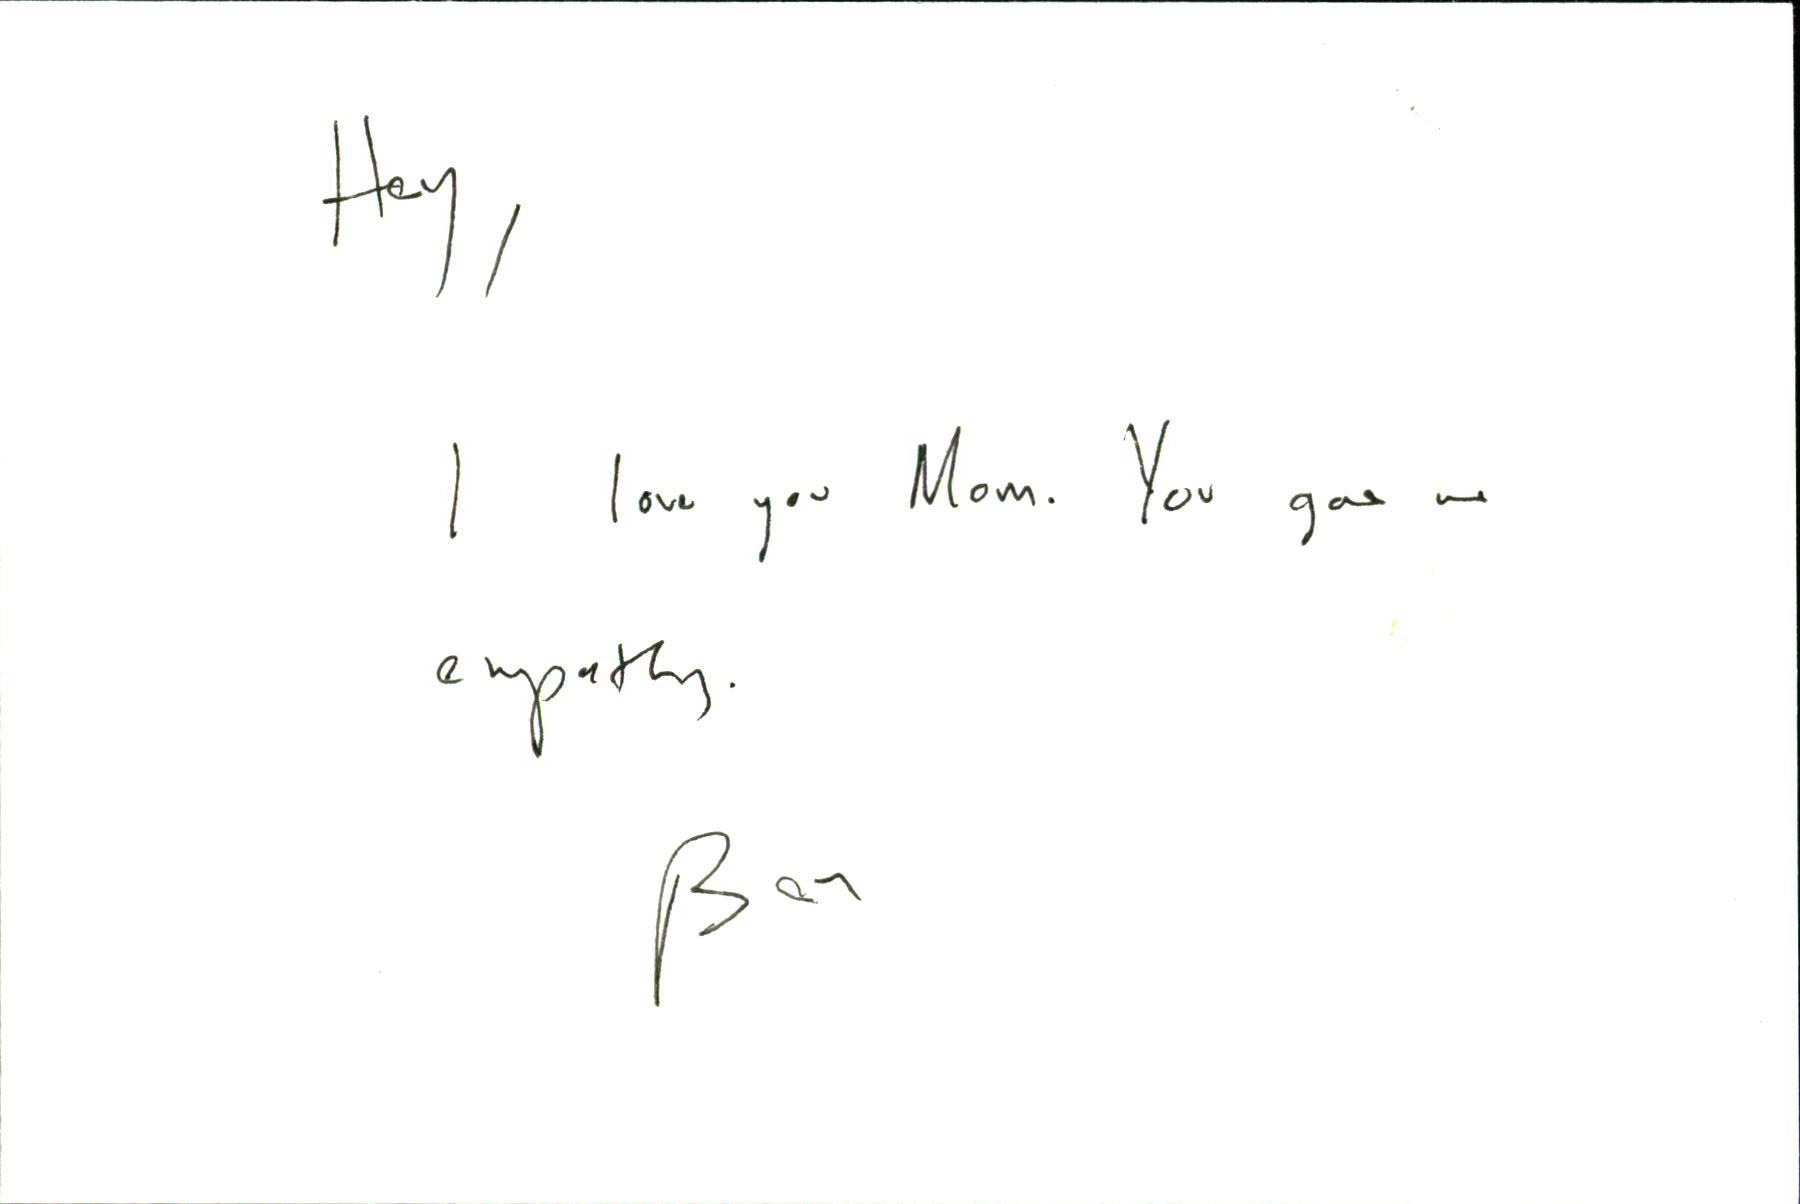 Hey,
I love you Mom. You gave me
empathy.
Ben